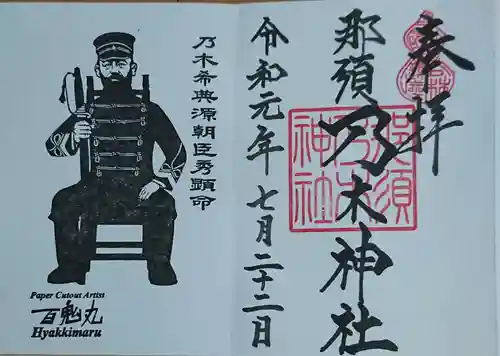 奉拝
那須乃木神社
令和元年七月二十二日
那須
乃木
神社
乃木希典源朝臣秀顕命
Paper Cutout Artist
百鬼丸
Hyakkimaru